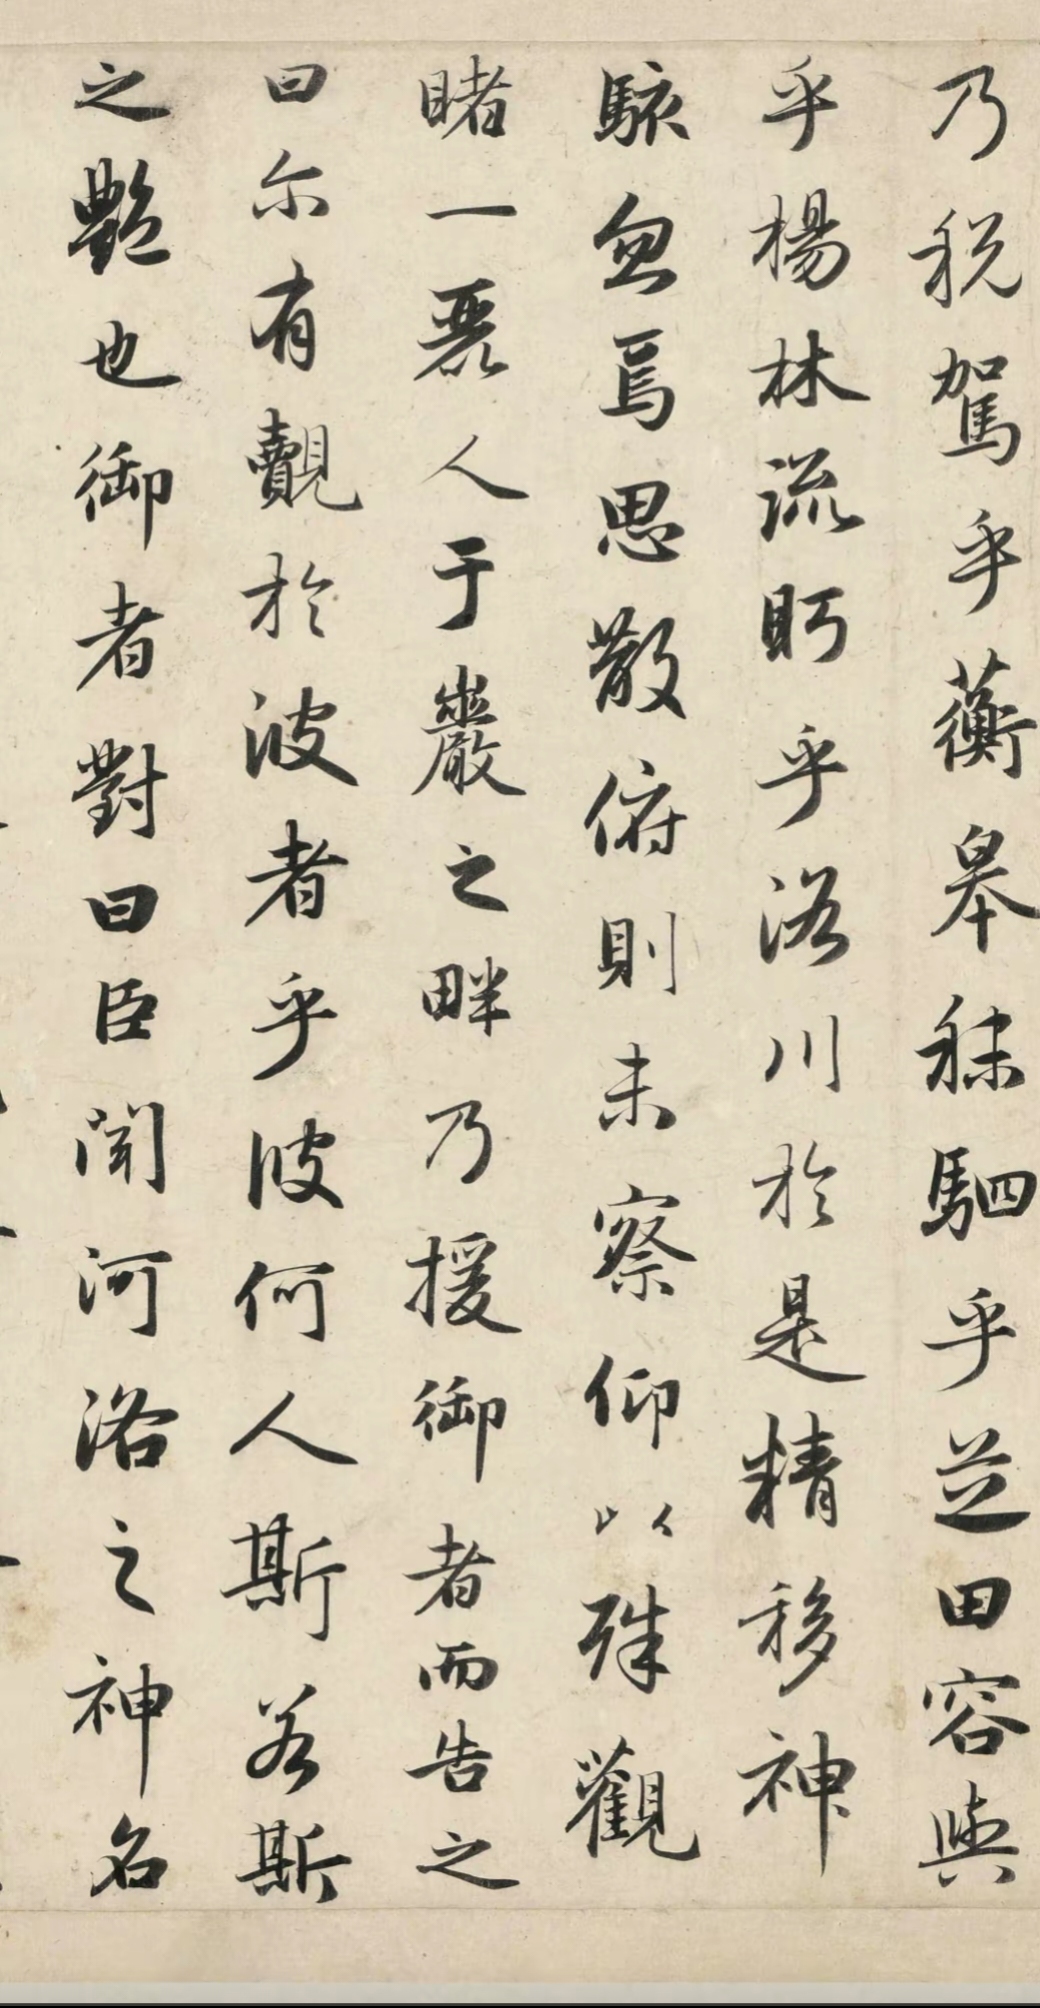 乃税駕乎蘅皋秣駟乎芝田容與
乎楊林流眄乎洛川於是精移神
駭忽焉思散俯則未察仰以殊觀
睹一麗人于巖之畔乃援御者而告之
曰尔有覿於彼者乎彼何人斯若斯
之艷也御者對曰臣聞河洛之神名